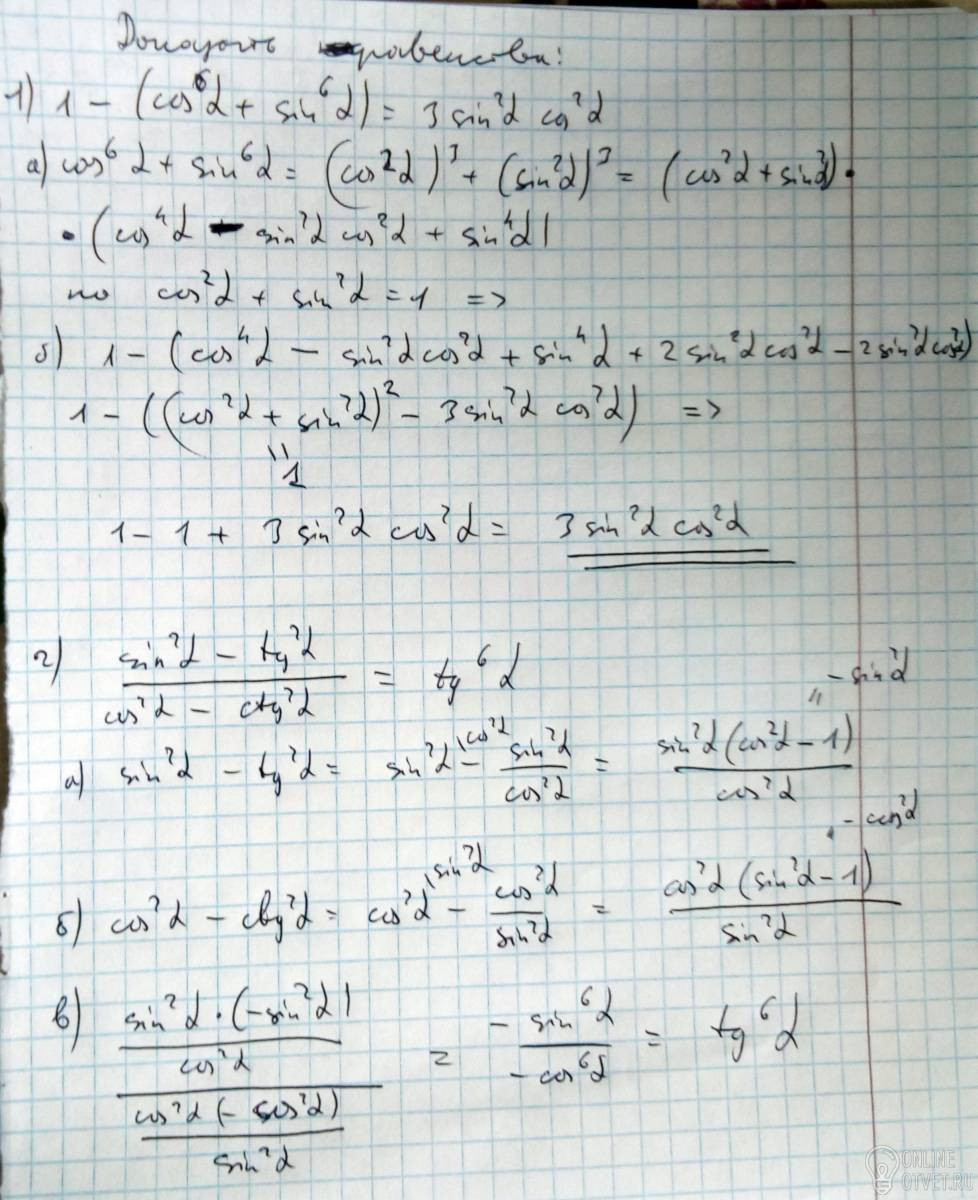 Доказать равенства:
1) 1 - (cos⁶α + sin⁶α) = 3 sin²α cos²α
а) cos⁶α + sin⁶α = (cos²α)³ + (sin²α)³ = (cos²α + sin²α) ·
· (cos⁴α - sin²α cos²α + sin⁴α)
но cos²α + sin²α = 1 =>
б) 1 - (cos⁴α - sin²α cos²α + sin⁴α + 2 sin²α cos²α - 2 sin²α cos²α)
1 - ((cos²α + sin²α)² - 3 sin²α cos²α) =>
"
1
1 - 1 + 3 sin²α cos²α = 3 sin²α cos²α
2) (sin²α - tg²α)/(cos²α - ctg²α) = tg⁶α
" - sin²α
а) sin²α - tg²α = sin²α \cos²α - sin²α/cos²α = sin²α (cos²α - 1)/cos²α
- cos²α
б) cos²α - ctg²α = cos²α \sin²α - cos²α/sin²α = cos²α (sin²α - 1)/sin²α
в) (sin²α · (-sin²α)/cos²α)/(cos²α (- cos²α)/sin²α) = - sin⁶α/- cos⁶α = tg⁶α
ONLINE
OTVET.RU